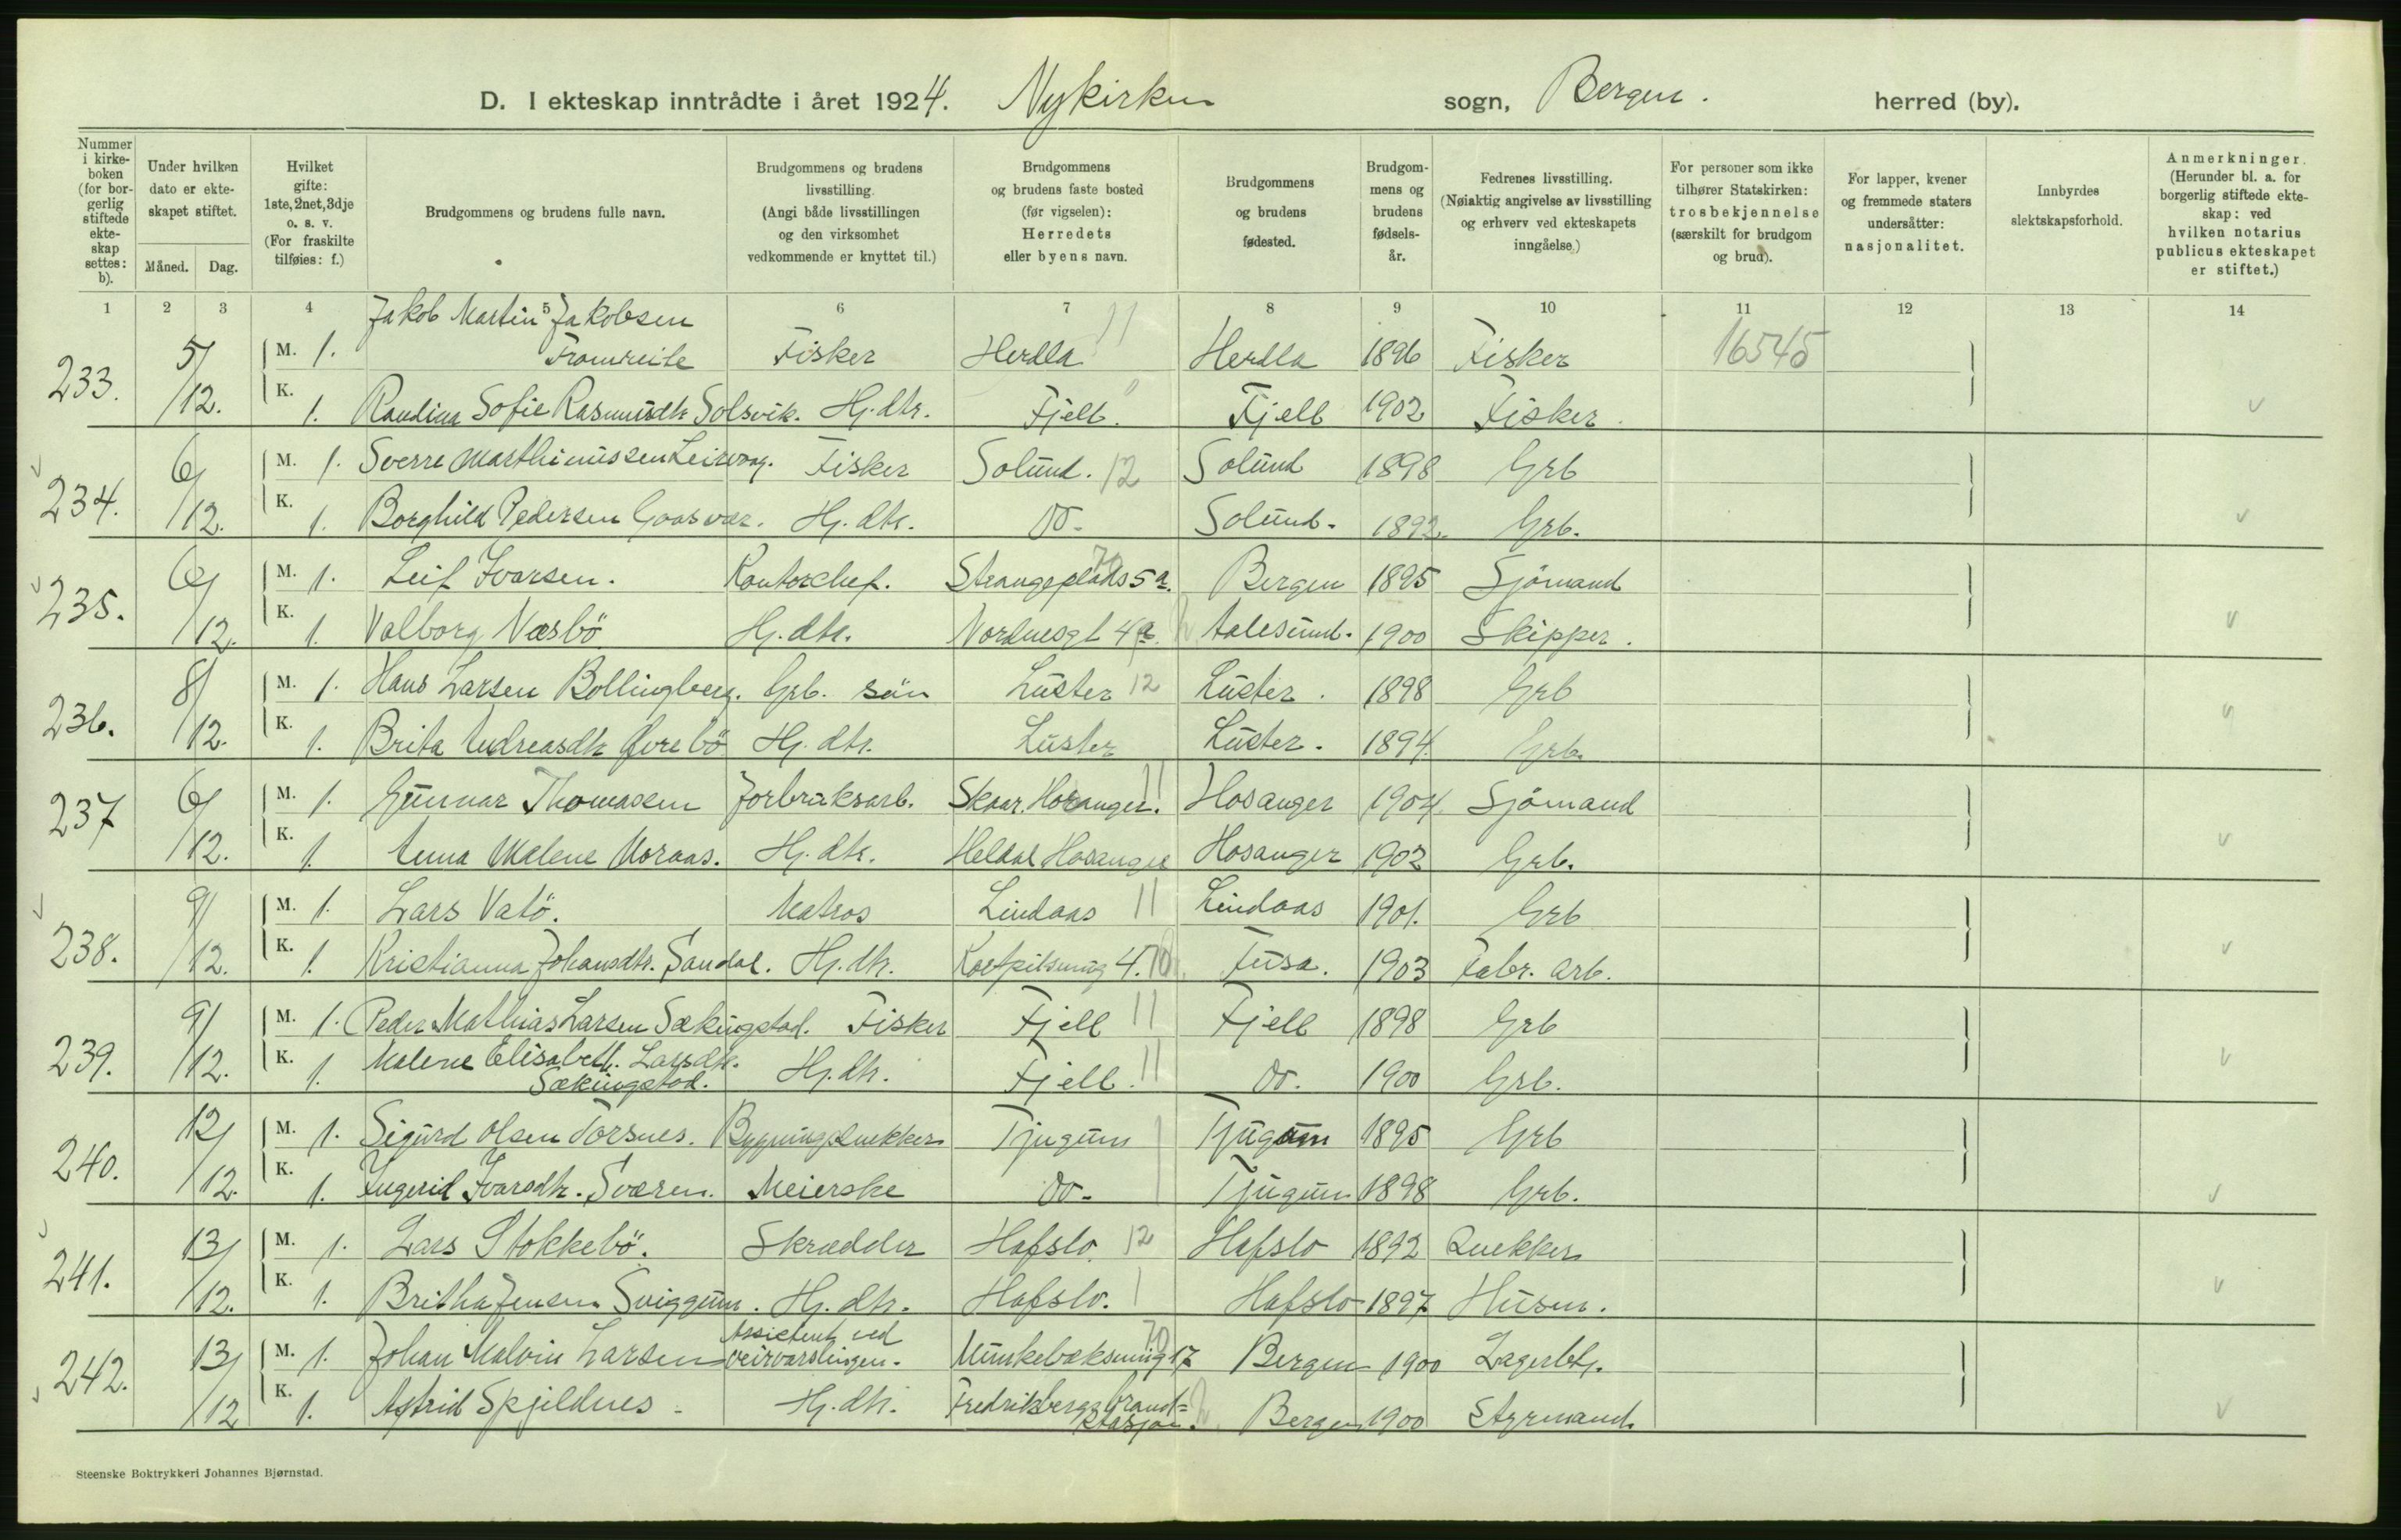 D. I ekteskap inntrådte i året 1924. Nykirken sogn, Bergen. herred (by).
Nummer i kirkeboken (for borgerlig stiftede ekteskap settes: b).
Under hvilken dato er ekteskapet stiftet.
Måned. Dag.
Hvilket gifte: 1ste, 2net, 3dje o. s. v. (For fraskilte tilføies: f.)
Brudgommens og brudens fulle navn.
Brudgommens og brudens livsstilling. (Angi både livsstillingen og den virksomhet vedkommende er knyttet til.)
Brudgommens og brudens faste bosted (før vigselen): Herredets eller byens navn.
Brudgommens og brudens fødested.
Brudgommens og brudens fødselsår.
Fedrenes livsstilling. (Nøiaktig angivelse av livsstilling og erhverv ved ekteskapets inngåelse.)
For personer som ikke tilhører Statskirken: trosbekjennelse (særskilt for brudgom og brud).
For lapper, kvener og fremmede staters undersåtter: nasjonalitet.
Innbyrdes slektskapsforhold.
Anmerkninger. (Herunder bl. a. for borgerlig stiftede ekteskap: ved hvilken notarius publicus ekteskapet er stiftet.)
1 2 3 4 5 6 7 8 9 10 11 12 13 14
Jakob Martin Jakobsen
233. 5/12. M. 1. Framreite Fisker Herdla 11 Herdla 1896 Fisker 16545
K. 1. Randina Sofie Rasmusdtr Solsvik. Hj. dtr. Fjell. Fjell 1902 Fisker.
234. 6/12. M. 1. Sverre Marthinussen Leirvag. Fisker Solund. 12 Solund 1898 Grb
K. 1. Borghild Pedersen Gaasvær. Hj. dtr. Do. Solund. 1892. Grb.
235. 6/12. M. 1. Leif Ivarsen. Kontorchef. Strangeplads 5a. 70 Bergen 1895 Sjömand
K. 1. Valborg Næsbö Hj. dtr. Nordnesgt 4a. Aalesund. 1900 Skipper.
236. 8/12. M. 1. Hans Larsen Bollingberg. Grb. sön Luster 12 Luster. 1898 Grb
K. 1. Brita Andreasdtr Överbö Hj. dtr. Luster Luster. 1894. Grb.
237 6/12. M. 1. Gunnar Thomasen Fabriksarb. Skaar. Hosanger. 11 Hosanger 1904. Sjömand
K. 1. Anna Malene Moraas. Hj. dtr. Heldal Hosanger Hosanger 1902 Grb.
238. 9/12. M. 1. Lars Vatö. Matros Lindaas 11 Lindaas 1901. Grb
K. 1. Kristianna Johansdtr. Sandal. Hj. dtr. 4. 70 Fusa. 1903 Fabr. arb.
239. 9/12. M. 1. Peder Mathias Larsen Sækingstad. Fisker Fjell 11 Fjell 1898 Grb
K. 1. Malene Elisabeth. Larsdtr. Hj. dtr. Fjell. 11 Do. 1900 Grb.
Sækingstad.
240. 12/12. M. 1. Sigurd Olsen Torsnes. Bygningsnekker Tjugum Tjugum 1895 Grb
K. 1. Ingerid Ivarsdtr. Sværen. Meierske Do. Tjugum 1898 Grb.
241. 13/12. M. 1. Lars Stokkebö. Skrædder Hafslo. 12 Hafslo 1892 Snekker
K. 1. Britha Jensen Sviggum. Hj. dtr. Hafslo. Hafslo 1897 Husm.
Assistent ved
242. 13/12 M. 1. Johan Malvin Larsen veirvarslingen. Munkebæksmug 17 70 Bergen 1900 Lagerbetj.
K. 1. Astrid Spjeldnes. Hj. dtr. Fredriksbergs brand= Bergen 1900 Styrmand.
stasjon.
Steenske Boktrykkeri Johannes Bjørnstad.